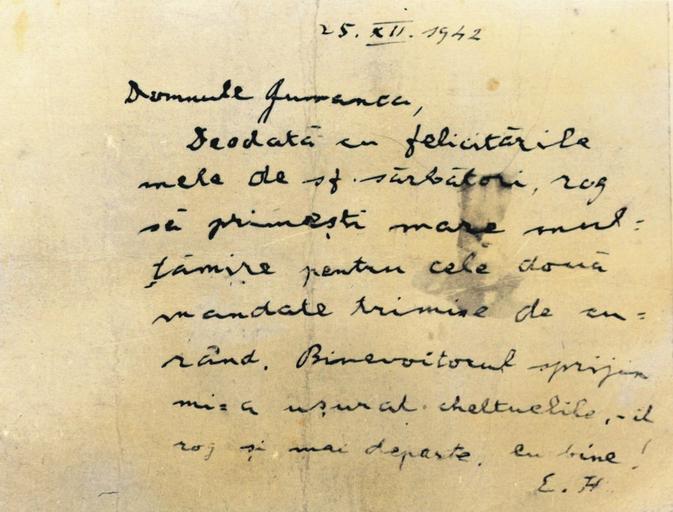 25. XII. 1942
Domnule Jumanca,
Deodată cu felicitările
mele de sf. sărbători, rog
să primești mare mul=
țămire pentru cele două
mandate trimise de cu=
rând. Binevoitorul sprijin
mi=a ușurat cheltuelile, - il
rog și mai departe. Cu bine!
E. H.